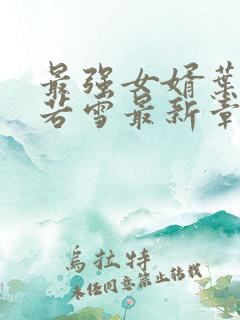 最强女婿叶
若雪最新章
乌拉特
未经同意禁止转载